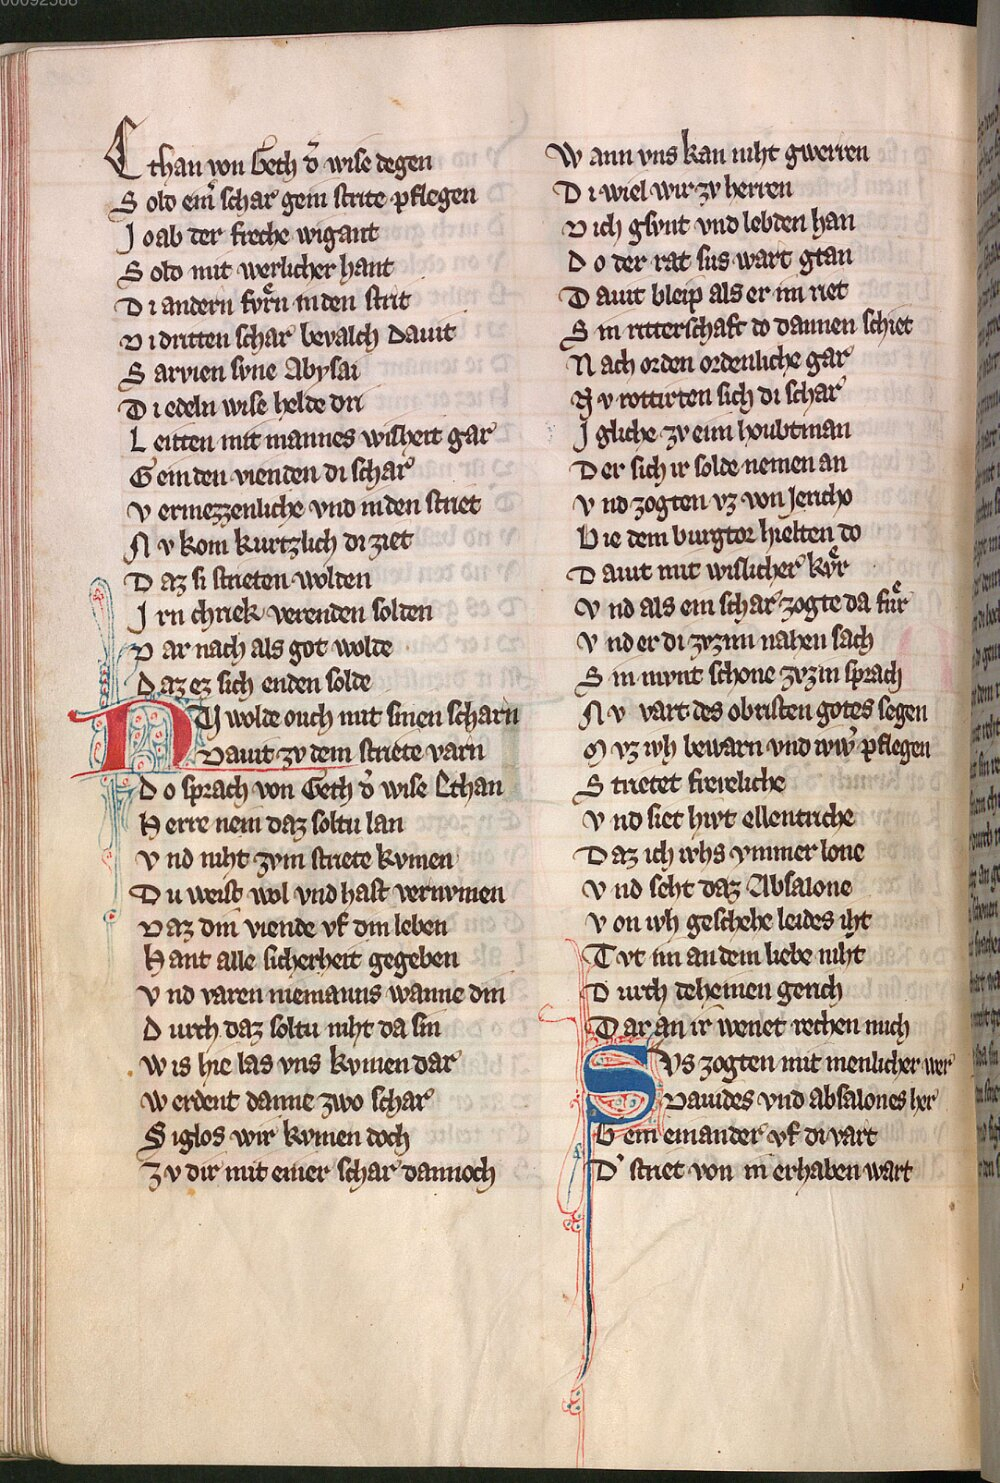 Ethan von Geth d̄ wise degen
Sold eim̄ schar gein strite pflegen
Joab der freche wigant
Sold mit werlicher hant
Di andern fvͤrn inden strit
Di dritten schar bevalch Dauit
Sarvien svne Abysai
Di edeln wise helde dri
Leitten mit mannes wisheit gar
Gein den vienden di schar
Vermezzenliche vnd inden striet
Nv kom kurtzlich di ziet
Daz si strieten wolden
Irn chriek verenden solden
Dar nach als got wolde
Daz ez sich enden solde
NV wolde ouch mit sinen scharn
Dauit zv dem striete varn
Do sprach von Geth d̄ wise Ethan
Herre nein daz soltu lan
Vnd niht zvm striete kvmen
Du weist wol vnd hast vernvmen
Daz din viende vf din leben
Hant alle sicherheit gegeben
Vnd varen niemanns wanne din
Durch daz soltu niht da sin
Wis hie las vns kvmen dar
Werdent danne zwo schar
Siglos wir kvmen doch
Zv dir mit einer schar dannoch
Wann vns kan niht gwerren
Di wiel wir zv herren
Dich gsvnt vnd lebden han
Do der rat sus wart gtan
Dauit bleip als er im riet
Sin ritterschaft do dannen schiet
Nach orden ordenliche gar
Nv rottirten sich di schar
Igliche zv eim houbtman
Der sich ir solde nemen an
Vnd zogten vz von Jericho
Bie dem burgtor hielten do
Dauit mit wislicher kvͤr
Vnd als ein schar zogte da fuͤr
Vnd er di zvzim nahen sach
Sin mvnt schone zvzin sprach
Nv vart des obristen gotes segen
Mvz ivh bewarn vnd ivw̄ pflegen
Strietet freveliche
Vnd siet hivt ellentriche
Daz ich ivhs ymmer lone
Vnd seht daz Absalone
Von ivh geschehe leides iht
Tvt im an dem liebe niht
Durch deheinen gerich
Dar an ir wenet rechen mich
SVs zogten mit menlicher wer
Dauides vnd absalones her
Gein einander vf di vart
D' striet von in erhaben wart